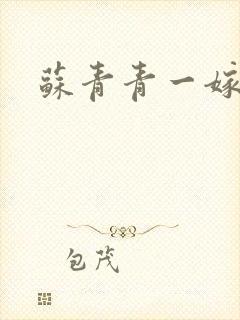 蘇青青一嫁
包茂